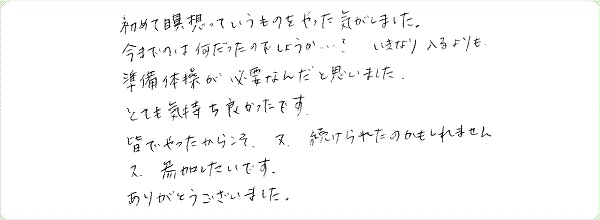 初めて瞑想っていうものをやった気がしました。
今までのは何だったのでしょうか…？ いきなり入るよりも
準備体操が必要なんだと思いました.
とても気持ち良かったです.
皆でやったからこそ. 又. 続けられたのかもしれません
又. 参加したいです.
ありがとうございました。